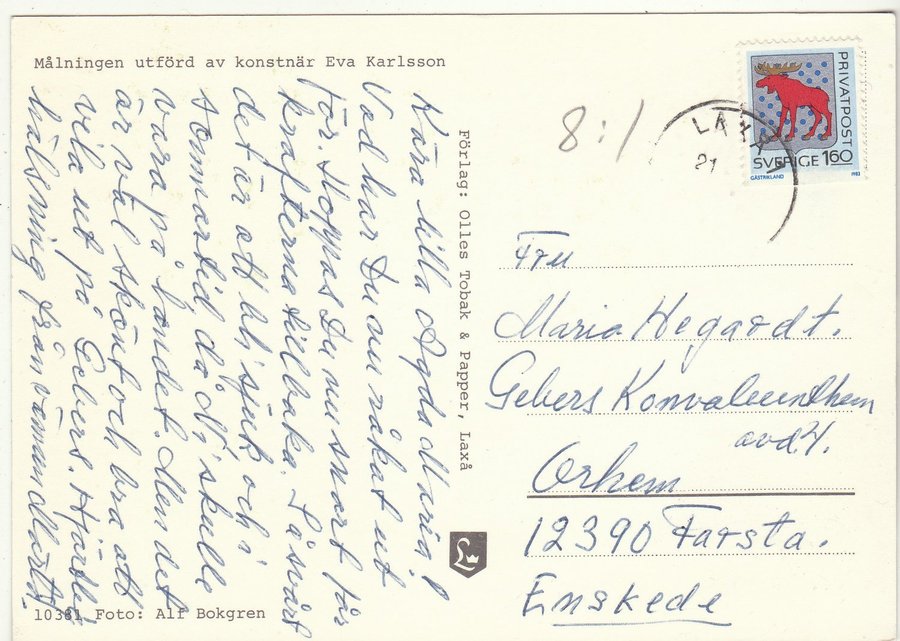 Målningen utförd av konstnär Eva Karlsson
Kära lilla Agda Maria!
Vad har Du nu råkat ut
för. Hoppas Du nu snart får
krafterna tillbaka. Så svårt
det är att bli sjuk och i
sommartid, då Di skulle
vara på landet. Men det
är väl skönt och bra att
vila ut på Gebers. Hjärtlig
hälsning från
10381 Foto: Alf Bokgren
Förlag: Olles Tobak & Papper, Laxå
8:1
LAXÅ
21
PRIVATPOST
SVERIGE 160
GÄSTRIKLAND 1983
Fru
Maria Heggrodt.
Gebers Konvalecenthem
avd 4.
Orhem
12390 Farsta.
Enskede